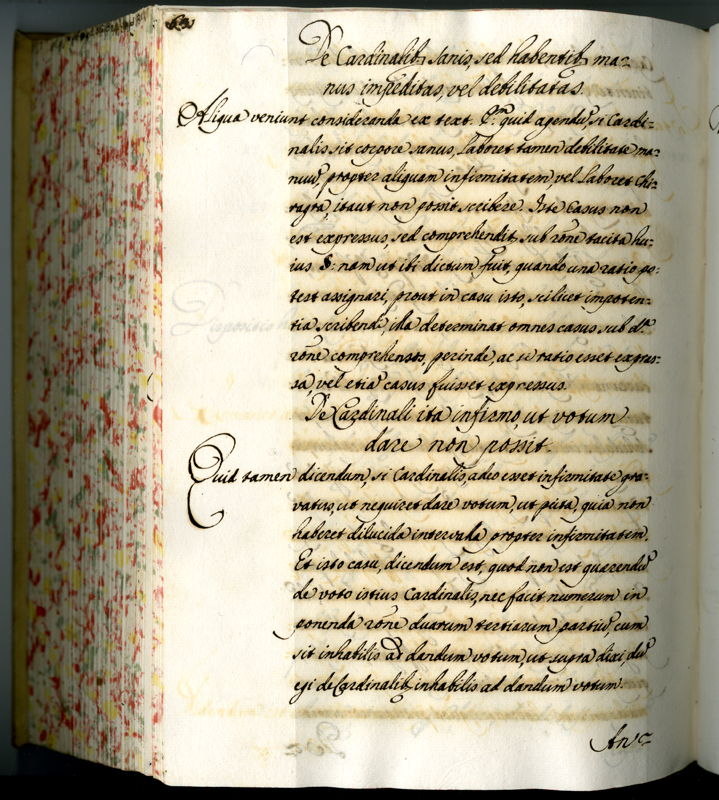 De Cardinalib, sanis, sed habentib, ma=
nus impeditas, vel debilitatas.
Aliqua veniunt consideranda ex text. Pm quid agendũ, si Cardi=
nalis sit corpore sanus, laboret tamen debilitate ma=
nuũ, propter aliquam infirmitatem, vel laboret Chi=
ragra, itaut non possit scribere. Iste Casus non
est expressus, sed comprehendit, sub rõne tacita hu=
ius §: nam ut ibi dictum fuit, quando una ratio po=
test assignari, prout in casu isto, scilicet impoten=
tia scribendi, illa determinat omnes casus sub dta
rõne comprehensos, perinde, ac si ratio esset expres=
sa, vel etiã casus fuisset expressus.
De Cardinali ita infirmo, ut votum
dare non possit.
Quid tamen dicendum, si Cardinalis, adeo esset infirmitate gra=
vatus, ut nequiret dare votum, ut puta, quia non
haberet dilucida intervalla propter infirmitatem.
Et isto casu, dicendum est, quod non est quaerendũ
de voto istius Cardinalis, nec facit numerum in
ponenda rõne duarum tertiarum partiũ, cum
sit inhabilis ad dandum votum, ut supra dixi, dũ
egi de Cardinalib, inhabilis ad dandum votum.